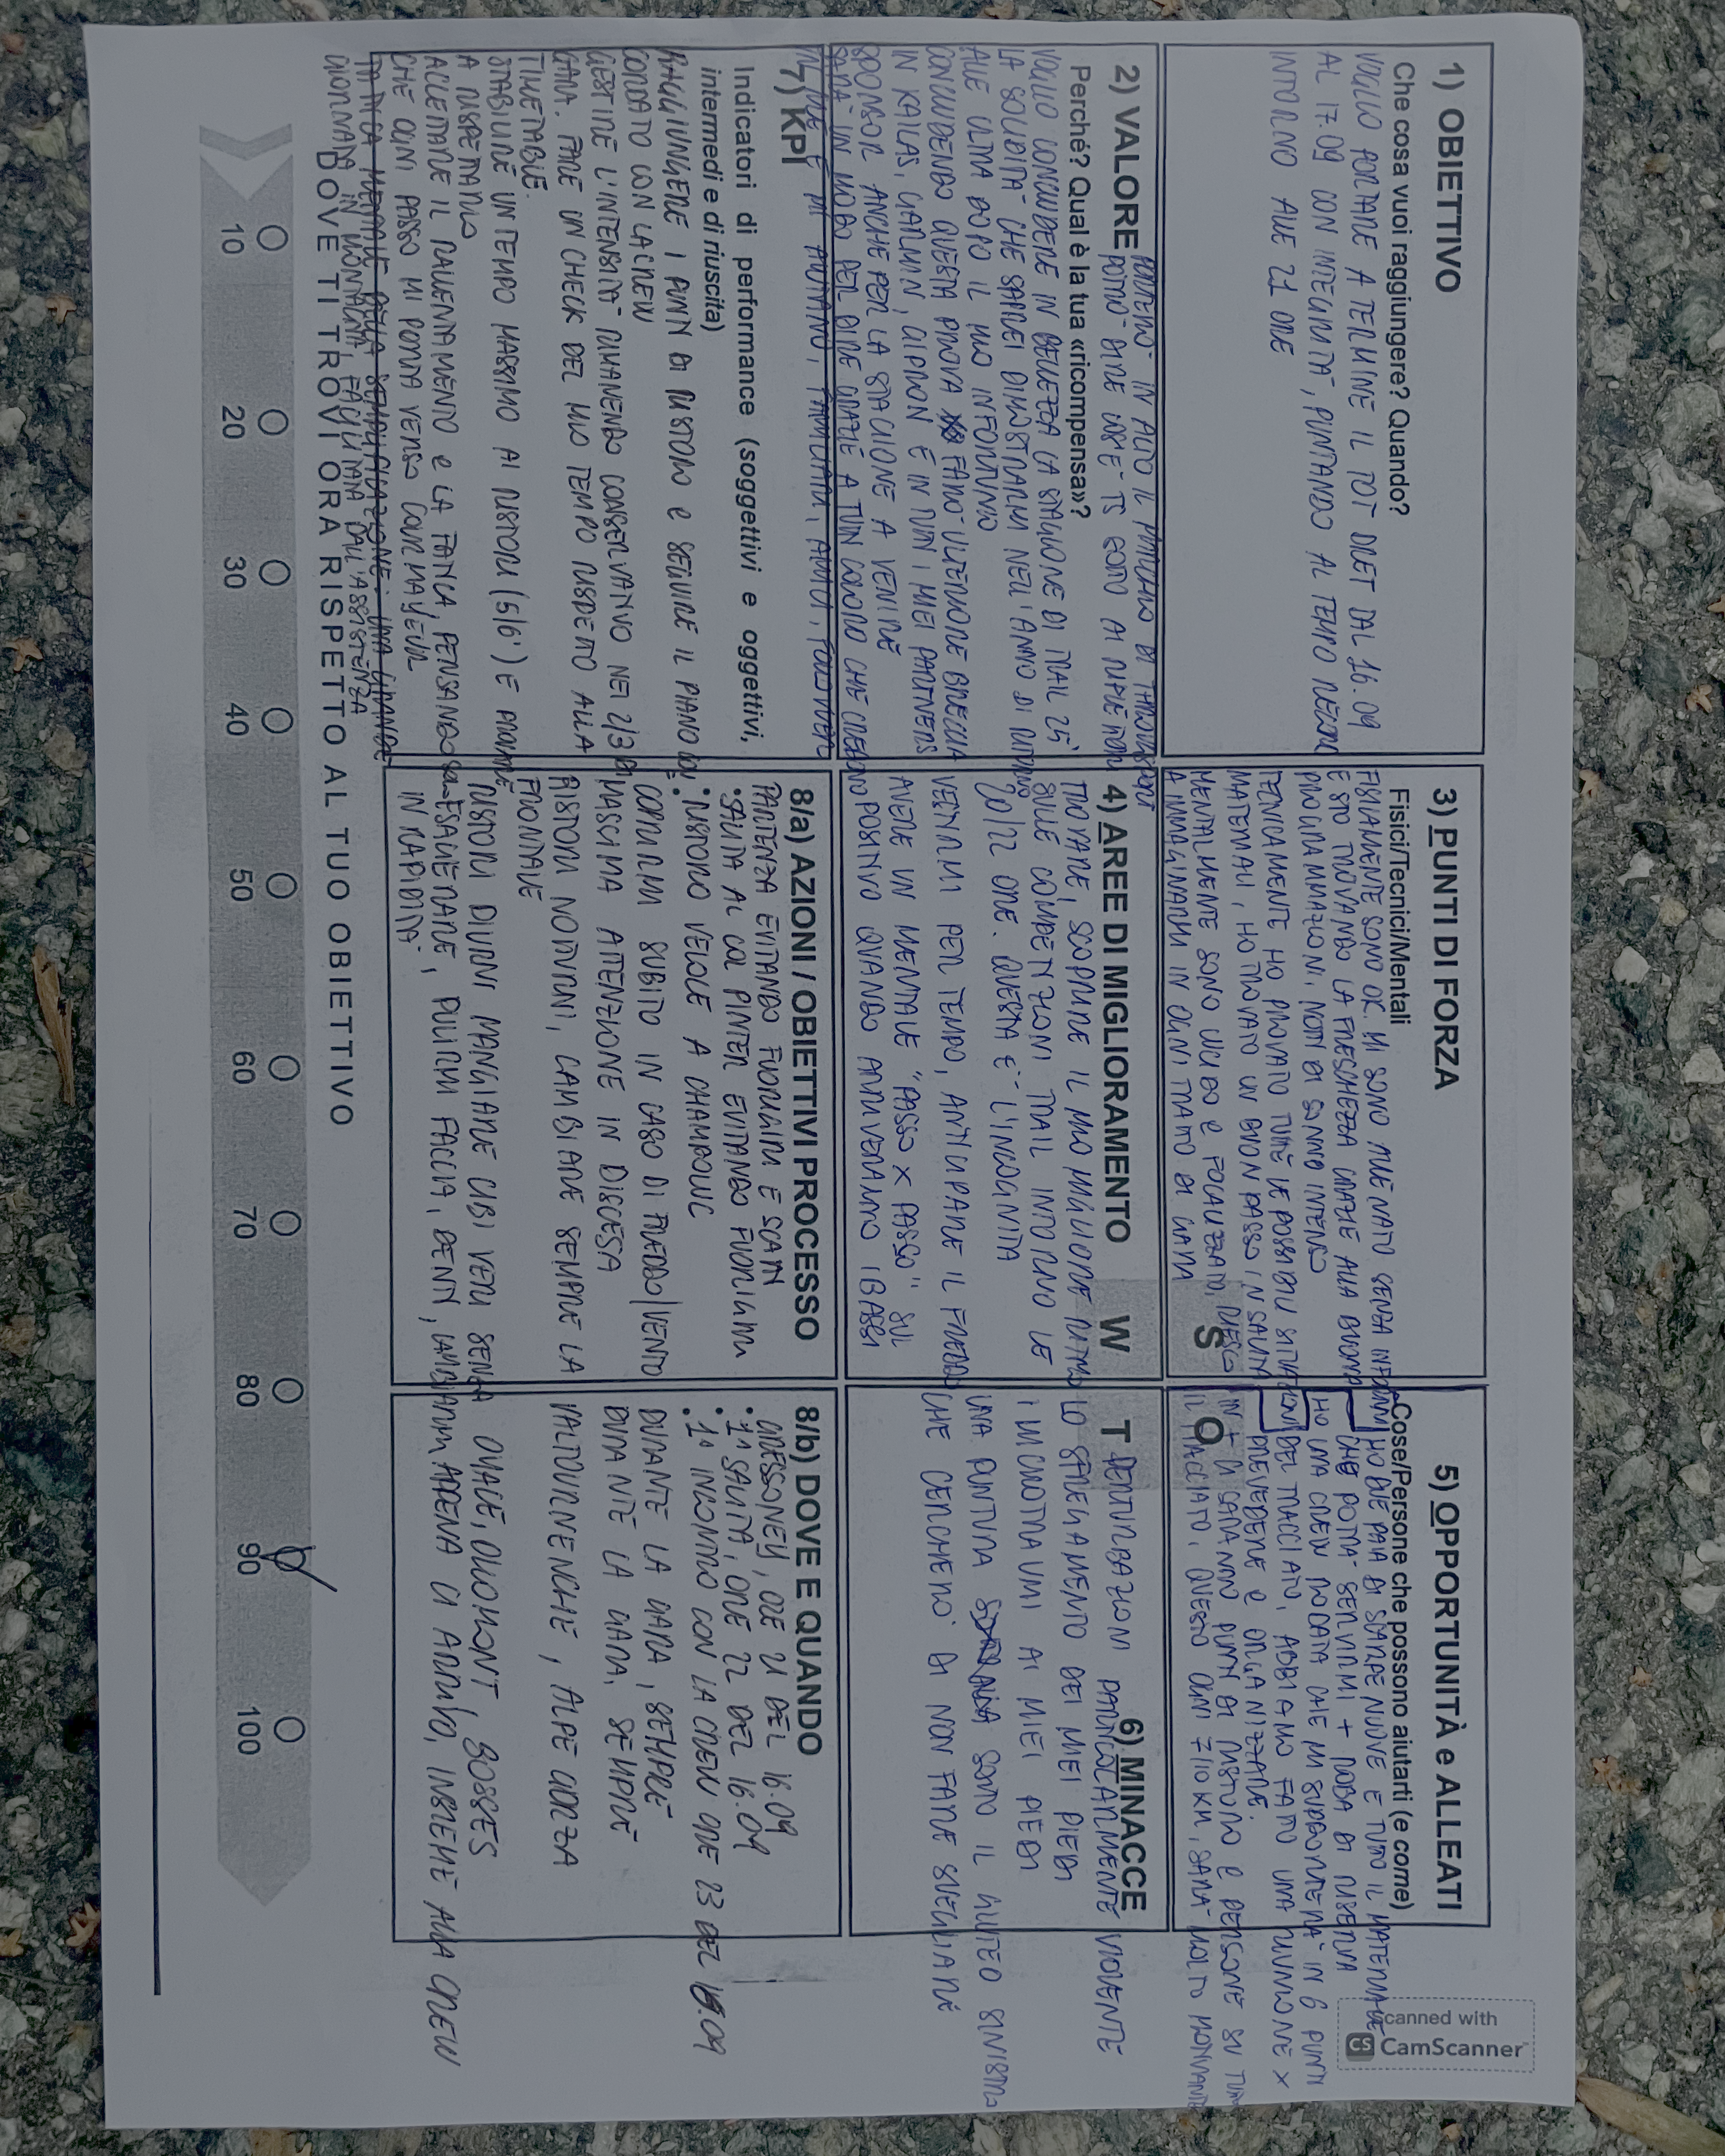 1) OBIETTIVO
Che cosa vuoi raggiungere? Quando?
VOGLIO PORTARE A TERMINE IL TOT DRET DAL 16.09
AL 17.09 CON INTEGRITÀ, PUNTANDO AL TEMPO RECORD
INTORNO ALLE 21 ORE
3) PUNTI DI FORZA
Fisici/Tecnici/Mentali
FISICAMENTE SONO OK. MI SONO ALLENATO SENZA INFORTUNI
E STO TROVANDO LA FRESCHEZZA GRAZIE ALLA BUONA
PROGRAMMAZIONE, NOTTI DI SONNO INTENSO
TECNICAMENTE HO PROVATO TUTTE LE POSSIBILI SITUAZIONI
MATERIALI, HO TROVATO UN BUON PASSO IN SALITA
MENTALMENTE SONO LUCIDO E FOCALIZZATO, RIESCO
A IMMAGINARMI IN OGNI TRATTO DI GARA
S
5) OPPORTUNITÀ e ALLEATI
Cose/Persone che possono aiutarti (e come)
HO DUE PAIA DI SCARPE NUOVE E TUTTO IL MATERIALE
CHE POTRÀ SERVIRMI + ROBA DI RISERVA
HO UNA CREW RODATA CHE MI SUPPORTERÀ IN 6 PUNTI
DEL TRACCIATO, ABBIAMO FATTO UNA RIUNIONE X
PREVEDERE E ORGANIZZARE.
IN + CI SARANNO PUNTI DI RISTORO E PERSONE SU TUTTO
IL TRACCIATO, QUESTO OGNI 7/10 KM, SARÀ MOLTO MOTIVANTE
O
2) VALORE
Perché? Qual è la tua «ricompensa»?
PORTERÒ IN ALTO IL MARCHIO DI
POTRÒ DIRE
VOGLIO CONCLUDERE IN BELLEZZA LA STAGIONE DI TRAIL 25'
LA SOLIDITÀ CHE SAREI DIMOSTRARMI NELL'ANNO DI RITORNO
ALLE ULTRA DOPO IL MIO INFORTUNIO
CONCLUDENDO QUESTA PROVA FARÒ ULTERIORE BRECCIA
IN KAILAS, GARMIN, CIPRION E IN TUTTI I MIEI PARTNERS
SPONSOR ANCHE PER LA STAGIONE A VENIRE
SARÀ UN MODO PER DIRE GRAZIE A TUTTI COLORO CHE CREDONO
IN ME E MI AIUTANO, FAMILIARI, AMICI, FOLLOWER
4) AREE DI MIGLIORAMENTO
W
TROVARE, SCOPRIRE IL MIO MIGLIORE RITMO
SULLE COMPETIZIONI TRAIL INTORNO LE
20/22 ORE. QUESTA È L'INCOGNITA
VESTIRMI PER TEMPO, ANTICIPARE IL FREDDO
AVERE UN MENTALE "PASSO X PASSO" SUL
POSITIVO QUANDO ARRIVERANNO I BASSI
6) MINACCE
T
PERTURBAZIONI PARTICOLARMENTE VIOLENTE
LO SFREGAMENTO DEI MIEI PIEDI
I MICROTRAUMI AI MIEI PIEDI
UNA PUNTURA SOTTO IL GLUTEO SINISTRO
CHE CERCHERÒ DI NON FARE SVEGLIARE
7) KPI
Indicatori di performance (soggettivi e oggettivi,
intermedi e di riuscita)
RAGGIUNGERE I PUNTI DI RISTORO E SEGUIRE IL PIANO
CORDATO CON LA CREW
GESTIRE L'INTENSITÀ RIMANENDO CONSERVATIVO NEI 2/3 DI
GARA. FARE UN CHECK DEL MIO TEMPO RISPETTO ALLA
TIMETABLE.
STABILIRE UN TEMPO MASSIMO AI RISTORI (5/6') E
A RISPETTARLO
ACCETTARE IL RALLENTAMENTO E LA FATICA, PENSANDO
CHE OGNI PASSO MI PORTA VERSO COURMAYEUR
GIORNATA IN MONTAGNA, FACILITATA DALL'ASSISTENZA
8/a) AZIONI / OBIETTIVI PROCESSO
PARTENZA EVITANDO FUORIGIRI E SCATTI
• SALITA AL COL PINTER EVITANDO FUORIGIRI
• RISTORO VELOCE A CHAMPOLUC
COPRIRMI SUBITO IN CASO DI FREDDO/VENTO
MASSIMA ATTENZIONE IN DISCESA
RISTORI NOTTURNI, CAMBIARE SEMPRE LA
FRONTALE
RISTORI DIURNI MANGIARE CIBI VERI SENZA
ESAGERARE, PULIRMI FACCIA, DENTI, CAMBIARMI
IN RAPIDITÀ
8/b) DOVE E QUANDO
GRESSONEY, ORE 21 DEL 16.09
• 1ª SALITA, ORE 22 DEL 16.09
• 1º INCONTRO CON LA CREW ORE 23 DEL 16.09
DURANTE LA GARA, SEMPRE
DURANTE LA GARA, SEMPRE
VALTOURNENCHE, ALPE CORZA
OYACE, OLLOMONT, BOSSES
APPENA CI ARRIVO, INSIEME ALLA CREW
DOVE TI TROVI ORA RISPETTO AL TUO OBIETTIVO
10 20 30 40 50 60 70 80 90 100
Scanned with
CS CamScanner